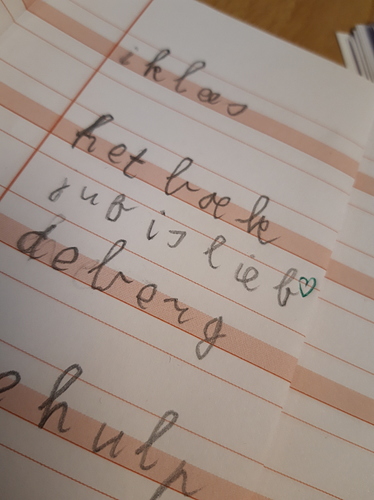 ik las
het boek
juf is lief
de berg
hulp